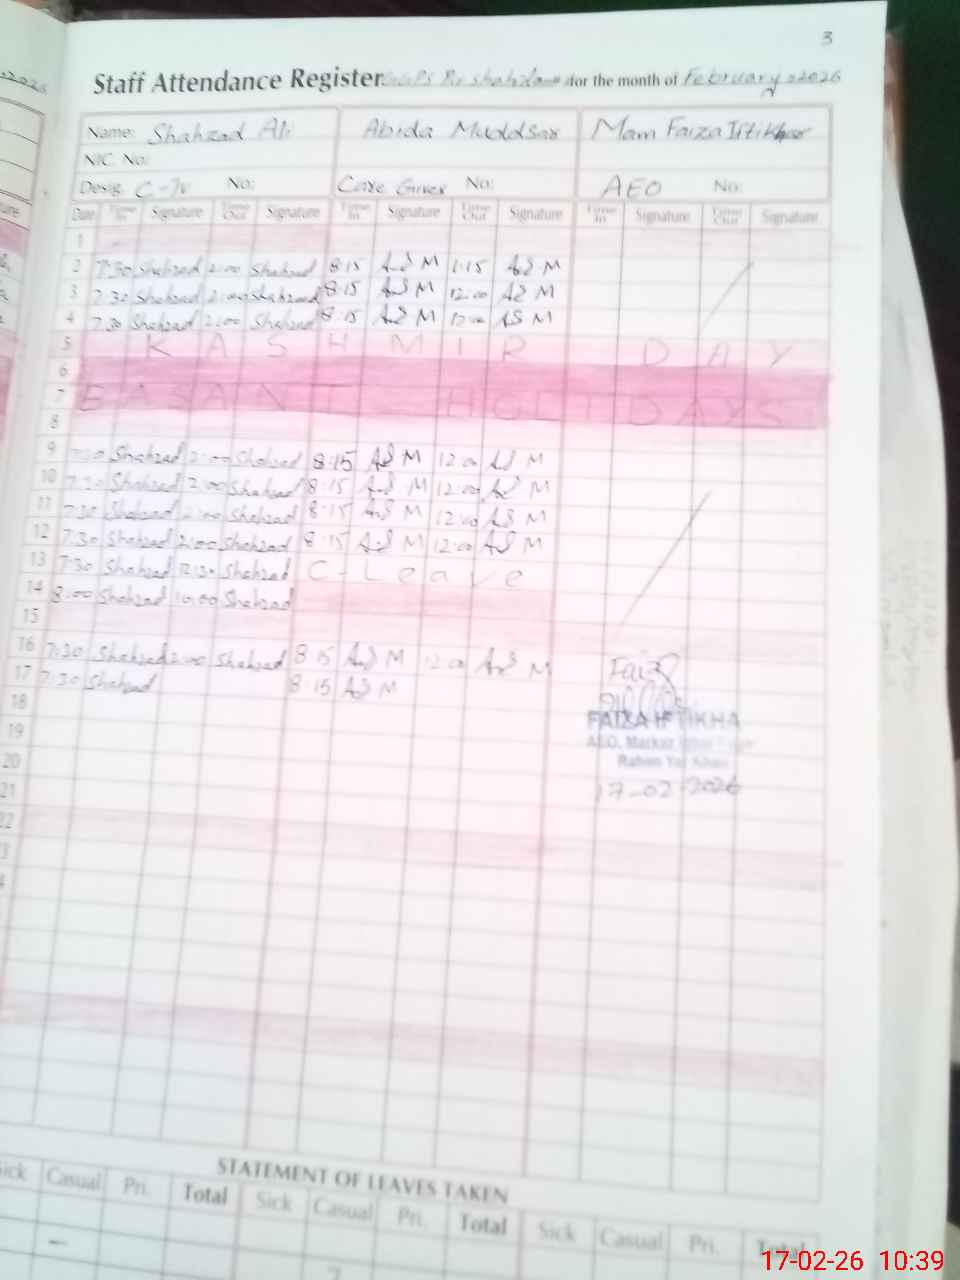 3
Staff Attendance Register for the month of February 2026
Name: Shahzad Ali Abida Muddsar Mam Faiza Iftikhar
NIC. No:
Desig. C-IV No: Care Giver No: AEO No:
Date Time In Signature Time Out Signature Time In Signature Time Out Signature Time In Signature Time Out Signature
1
2 7:30 Shahzad 2:00 Shahzad 8:15 AsS M 1:15 AsS M
3 7:30 Shahzad 2:00 Shahzad 8:15 AsS M 12:00 AS M
4 7:30 Shahzad 2:00 Shahzad 8:15 AsS M 12:00 AS M
5 KASHMIR DAY
6
7 BASANT HOLIDAYS
8
9 7:30 Shahzad 2:00 Shahzad 8:15 AS M 12:00 AS M
10 7:30 Shahzad 2:00 Shahzad 8:15 AsS M 12:00 AS M
11 7:30 Shahzad 2:00 Shahzad 8:15 AsS M 12:00 AS M
12 7:30 Shahzad 2:00 Shahzad 8:15 AsS M 12:00 AS M
13 7:30 Shahzad 12:30 Shahzad C-Leave
14 8:00 Shahzad 10:00 Shahzad
15
16 7:30 Shahzad 2:00 Shahzad 8:15 AsS M 12:00 AsS M
17 7:30 Shahzad 8:15 AS M
18
19
20
21
22
FAIZA IFTIKHA
AEO, Markaz
Rahim Yar Khan
17-02-2026
STATEMENT OF LEAVES TAKEN
Sick Casual Pri. Total Sick Casual Pri. Total Sick Casual Pri. Total
17-02-26 10:39